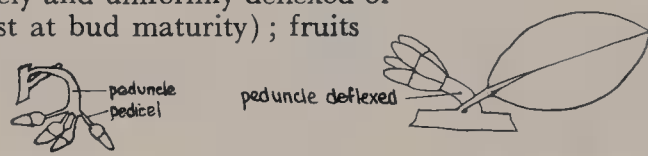 and uniformly deflexed or
st at bud maturity) ; fruits
peduncle
pedicel
peduncle deflexed